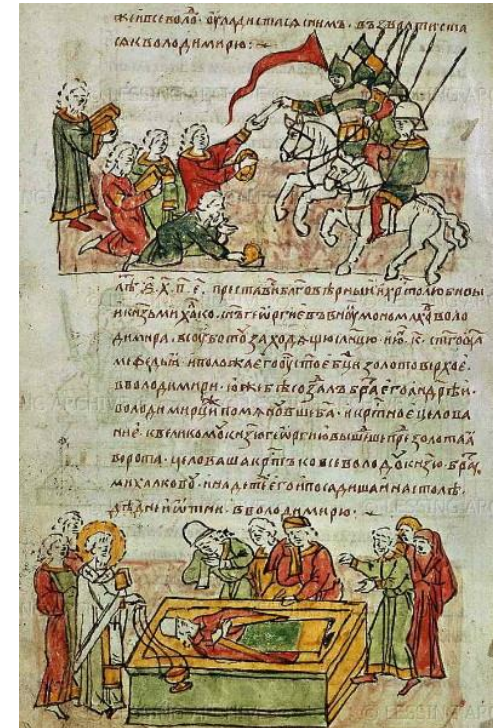 жеи всеволо. оуладистася с ним. възвратиста
ся к володимирю :~
лѣ ҂ѕ х п е. преставися бл͠говѣрныи х͠ртолюбивы
и кнзь михалко. с͠нъ георгиевъ. внꙋ мономахо воло
димира. в сꙋботꙋ заходящю слнцю. ию к. с͠тго ѡ͠ца
мефедьи. и положиша его оу с͠тое б͠ци золотоверхое
в володимири. юже бѣ созалъ бра его андрѣи.
володимирци помянꙋвше б͠а. и кр͠тное целова
ние. к великомꙋ кнзю георгию вышеше пре золотаꙗ
ворота. целоваша кр͠тъ ко всеволодꙋ кнзю. бра
михалковꙋ. и на дети его и посадиша и на столѣ.
дѣдни и ѿтни. в володимирю.